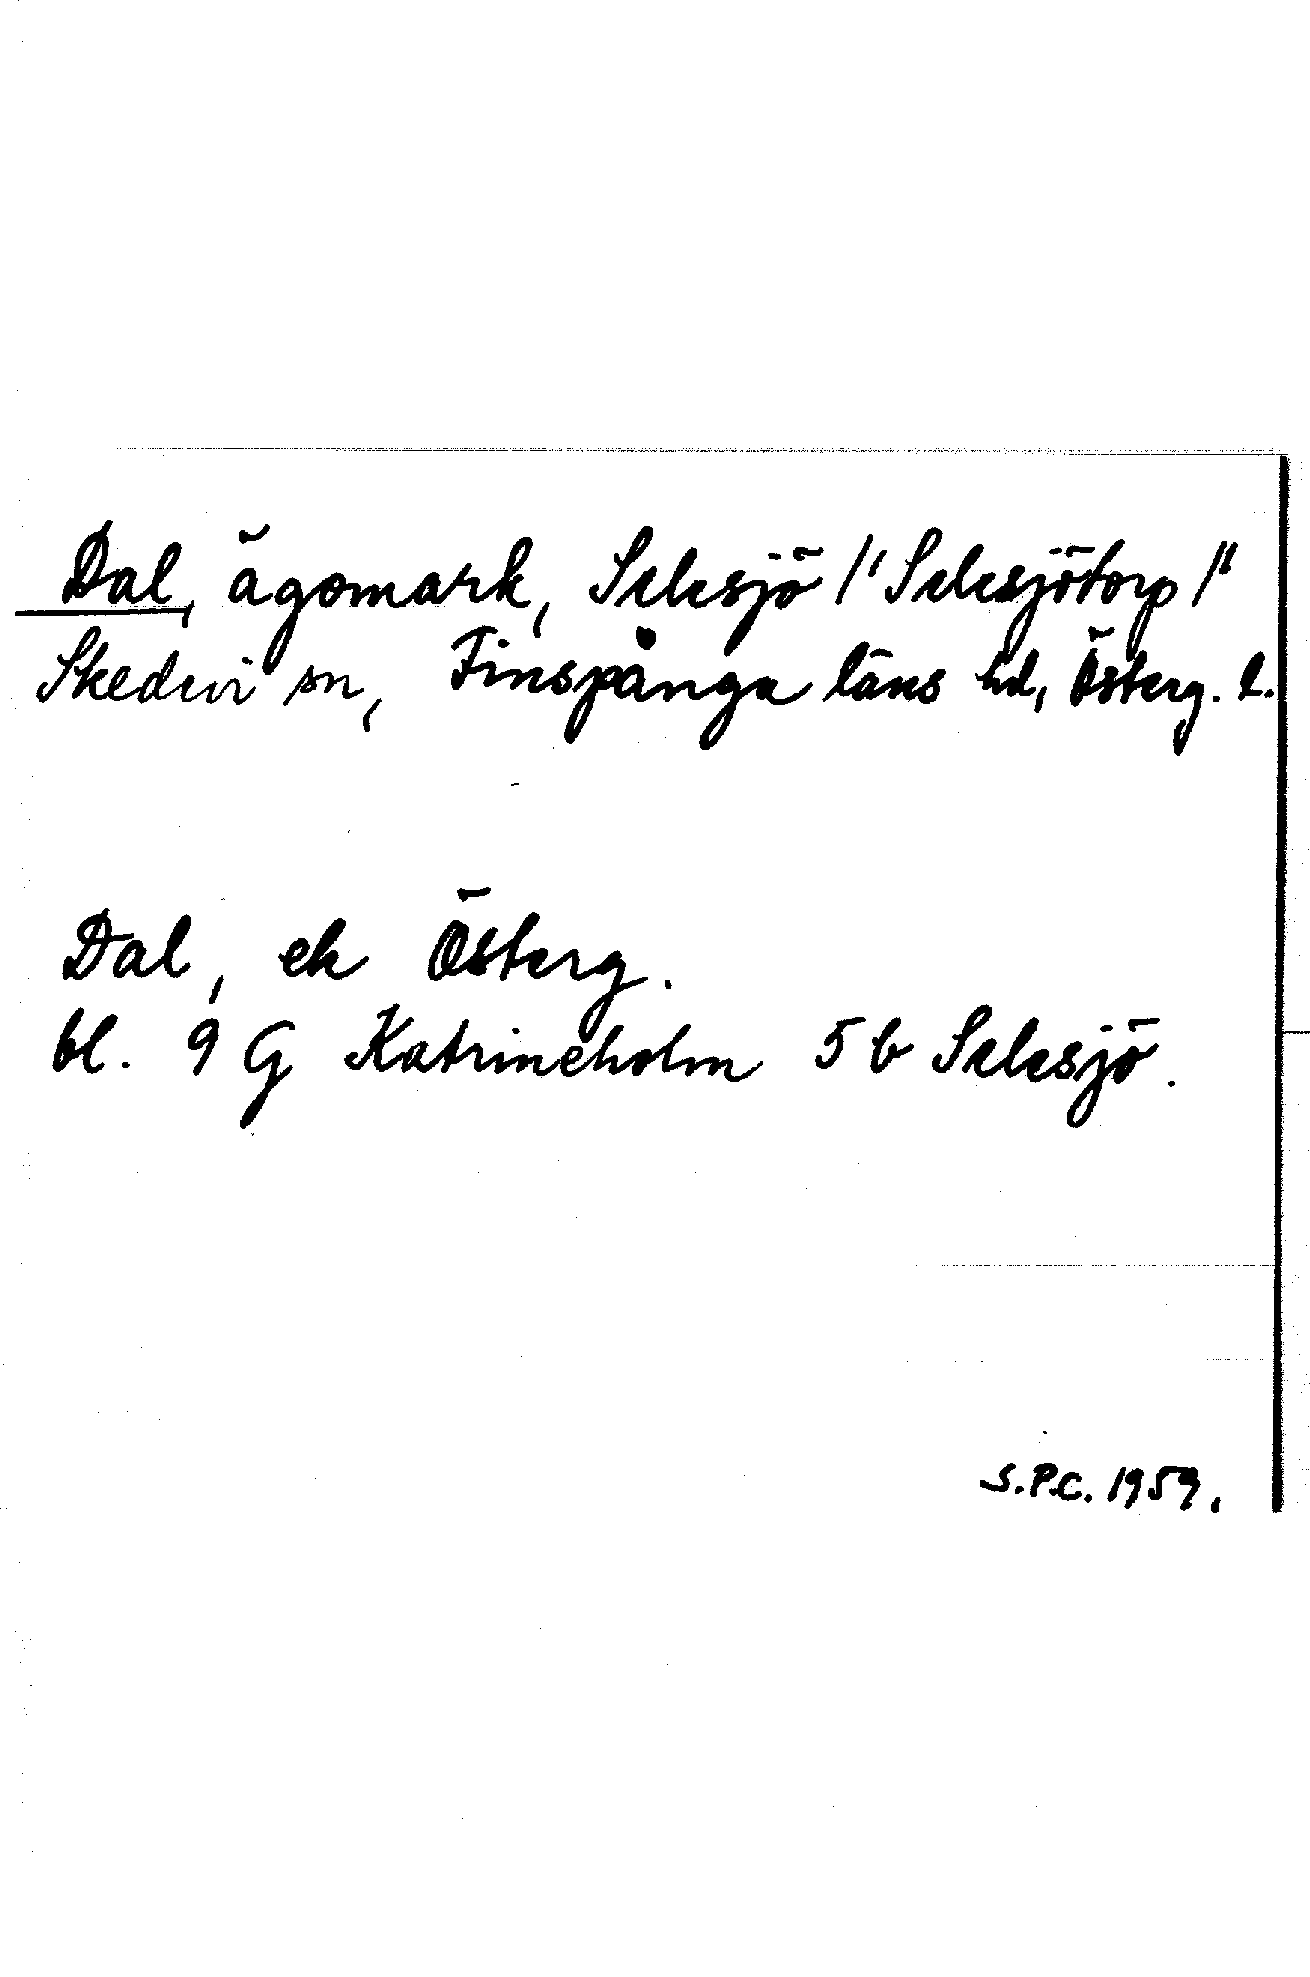 Dal, ägomark, Selesjö /"Selesjötorp/"
Skedevi sn, Finspånga läns hd, Österg. l.
Dal, ek Österg.
bl. 9 G Katrineholm 5 b Selesjö.
S.P.C. 1959.